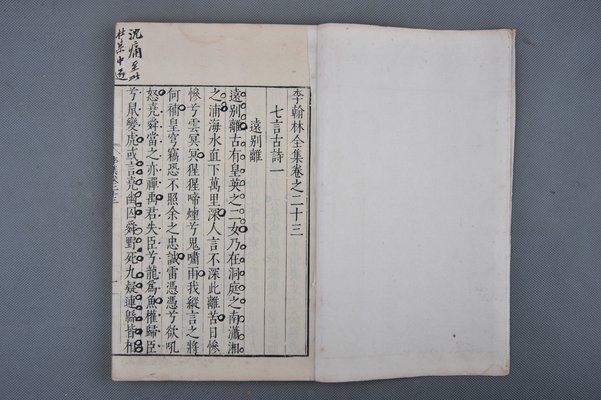 李翰林全集卷之二十三
七言古詩一
遠別離
遠別離古有皇英之二女乃在洞庭之南瀟湘
之浦海水直下萬里深人言不深此離苦日慘
慘兮雲冥冥猩猩啼煙兮鬼嘯雨我縱言之將
何補皇穹竊恐不照余之忠誠雷憑憑兮欲吼
怒堯舜當之亦禪禹君失臣兮龍為魚權歸臣
兮鼠變虎或言堯幽囚舜野死九疑連緜皆相
沉痛至此